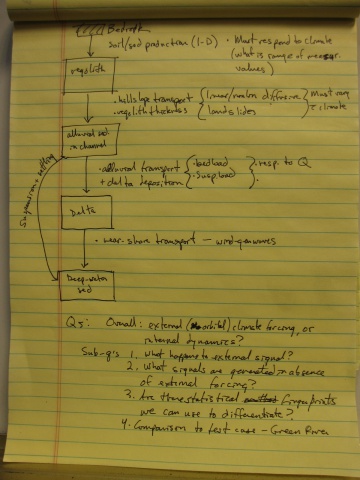 Bedrock
soil/sed production (1-D) • Must respond to climate
(what is range of measur.
values)
regolith
• hillslope transport { linear/nonlin diffusive } Must vary
• regolith thickness { landslides } c̄ climate
alluvial sed.
in channel
• alluvial transport { • bedload } • resp. to Q
+ delta deposition { • susp. load } •
Subaqueous settling
Delta
• near-shore transport — wind-gen waves
Deep-water
sed
Qs: Overall: external (orbital) climate forcing, or
internal dynamics?
Sub-q's 1. What happens to external signal?
2. What signals are generated in absence
of external forcing?
3. Are there statistical fingerprints
we can use to differentiate?
4. Comparison to test case – Green River